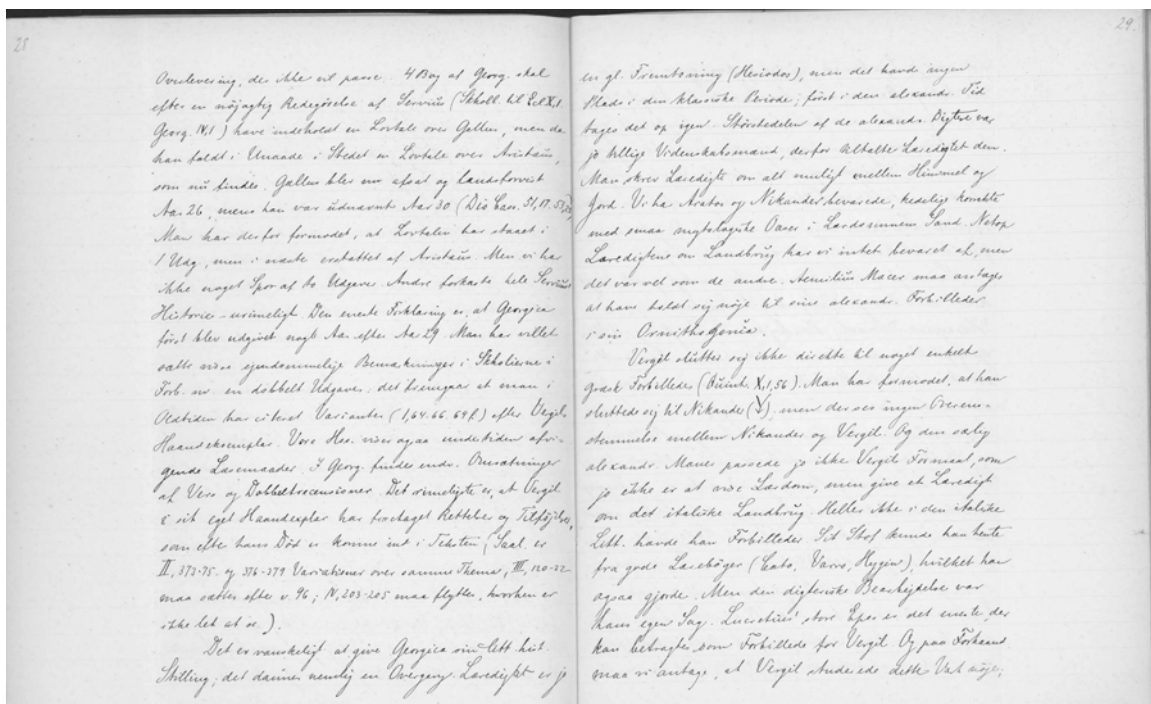 28
Overlevering, der ikke vil passe. 4 Bog af Georg. skal
efter en nöjagtig Redegörelse af Servius (Skholl. til Ecl X,1.
Georg. IV,1) have indeholdt en Lovtale over Gallus, men da
han faldt i Unaade i Stedet en Lovtale over Aristæus,
som nu findes. Gallus blev nu afsat og landsforvist
Aar 26, mens han var udnævnt Aar 30 (Dio Cass. 51,17. 53,23)
Man har derfor formodet, at Lovtalen har staaet i
1 Udg., men i næste erstattet af Aristæus. Men vi har
ikke noget Spor af to Udgaver. Andre forkaste hele Servius
Historie - urimeligt. Den eneste Forklaring er, at Georgica
först blev udgivet nogle Aar efter Aar 29. Man har villet
sætte visse ejendommelige Bemærkninger i Skholierne i
Forb. m. en dobbelt Udgave. det fremgaar at man i
Oldtiden har citeret Varianter (1,64. 66. 69 f.) efter Vergils
Haandexemplar. Vore Hss. viser ogsaa undertiden afvi-
gende Læsemaader. I Georg. findes ends. Omsætninger
af Vers og Dobbeltrecensioner. Det rimeligste er, at Vergil
i sit eget Haandexplar har foretaget Rettelser og Tilföjelser,
som efter hans Död er komne ind i Teksten. (Saal. er
II, 373-75. og 376-379 Variationer over samme Thema, III, 120-22
maa sættes efter v. 96; IV, 203-205 maa flyttes, hvorhen er
ikke let at se.).
Det er vanskeligt at give Georgica sin litt. hist.
Stilling; det danner nemlig en Overgang. Læredigtet er jo
29.
en gl. Fremtoning (Hesiodos), men det havde ingen
Plads i den klassiske Periode; först i den alexandr. Tid
tages det op igen. Störstedelen af de alexandr. Digtere var
jo tillige Videnskabsmænd, derfor tiltalte Læredigtet dem.
Man skrev Læredigte om alt muligt mellem Himmel og
Jord. Vi ha Aratos og Nikander bevarede, kedelige korrekte
med smaa mytologiske Oaser i Lærdommens Sand. Netop
Læredigtene om Landbrug har vi intet bevaret af, men
det var vel som de andre. Aemilius Macer maa antages
at have holdt sig nöje til sine alexandr. Forbilleder
i sin Ornithogonia.
Vergil slutter sig ikke direkte til noget enkelt
græsk Forbillede (Quint. X,1,56). Man har formodet, at han
sluttede sig til Nikander, men der ses ingen Overens-
stemmelse mellem Nikander og Vergil. Og den særlig
alexandr. Maner passede jo ikke Vergils Formaal, som
jo ikke er at vise Lærdom, men give et Læredigt
om det italiske Landbrug. Heller ikke i den italike
Litt. havde han Forbilleder. Sit Stof kunde han hente
fra gode Læreböger (Cato, Varro, Hygin), hvilket han
ogsaa gjorde. Men den digteriske Bearbejdelse var
hans egen Sag. Lucretius' store Epos er det eneste, der
kan betragtes som Forbillede for Vergil. Og paa Forhaand
maa vi antage, at Vergil studerede dette Værk nöje;